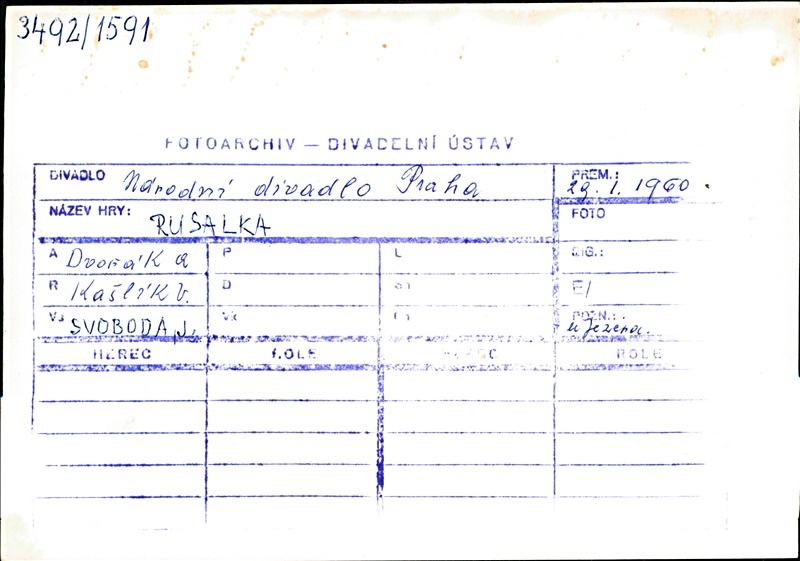 3492/1591
FOTOARCHIV — DIVADELNÍ ÚSTAV
DIVADLO Národní divadlo Praha PREM.: 29. 1. 1960.
NÁZEV HRY: RUSALKA FOTO
A Dvořák A P L SIG.:
R Kašlík V. D
Vs SVOBODA, J. POZN.:
HEREC ROLE HEREC ROLE